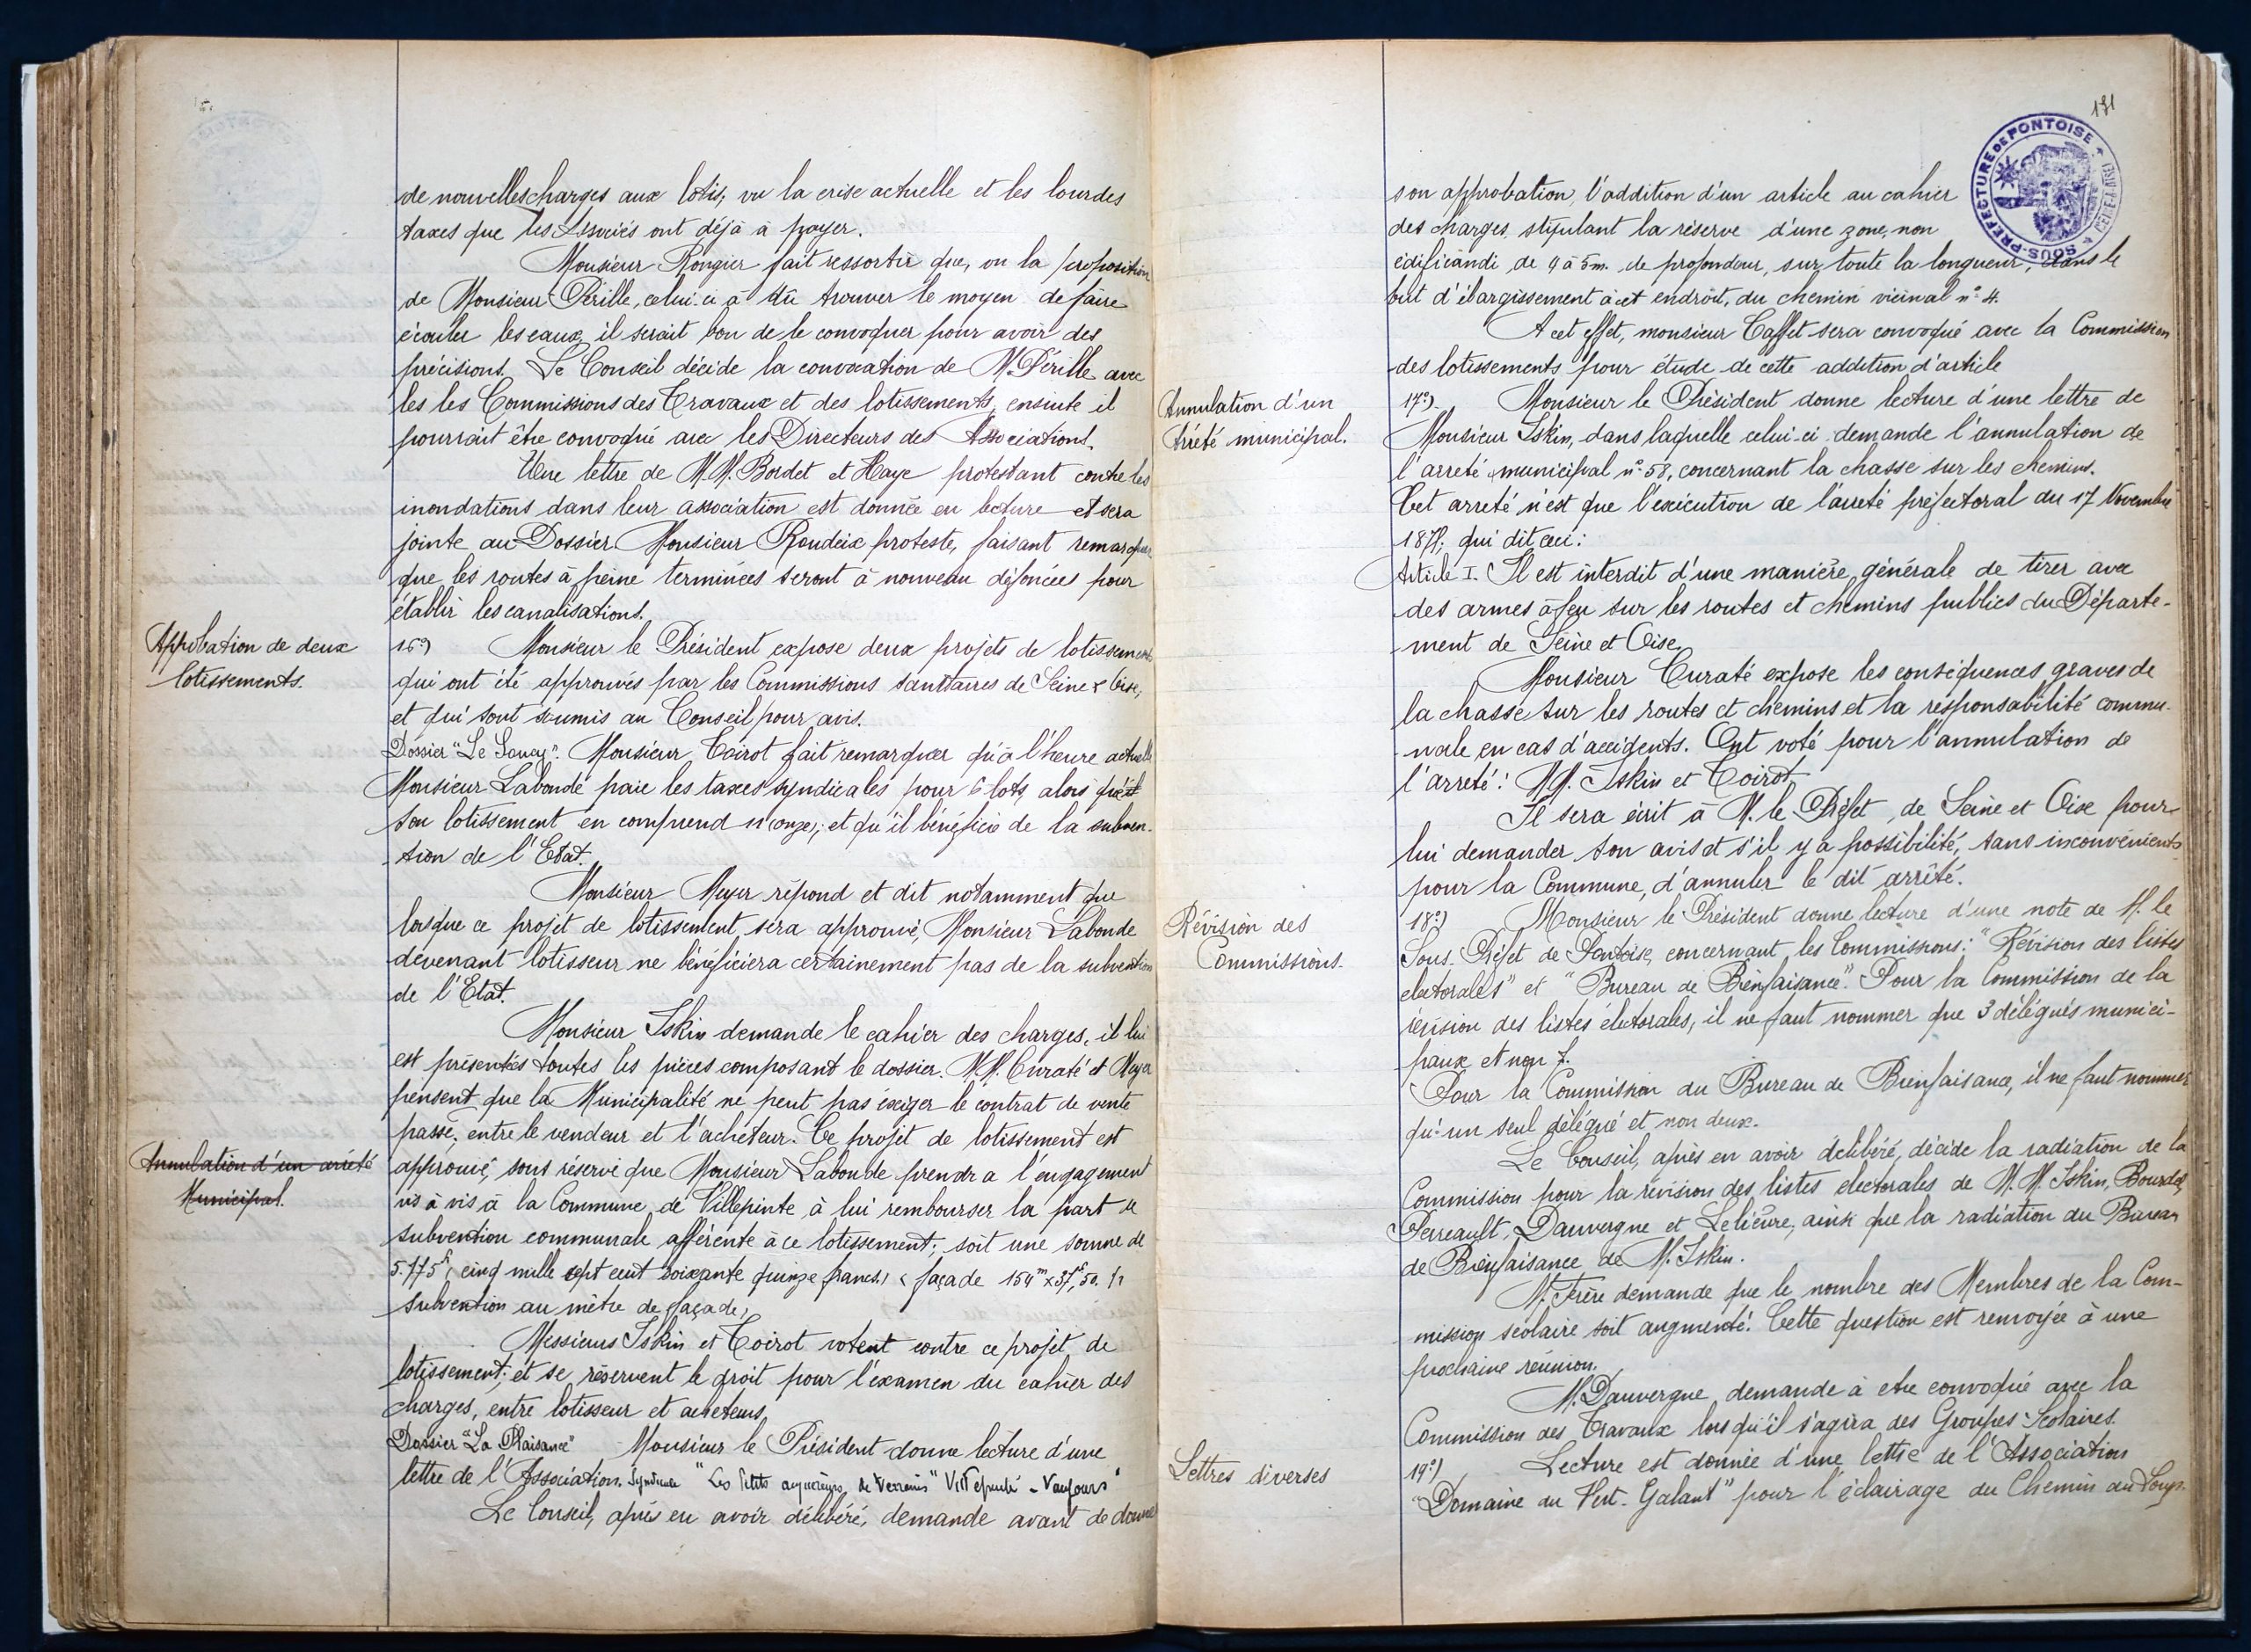 de nouvelles charges aux lotis, vu la crise actuelle et les lourdes
taxes que les Associés ont déjà à payer.
Monsieur Rongier fait ressortir que, vu la proposition
de Monsieur Pérille, celui-ci a dû trouver le moyen de faire
écouler les eaux, il serait bon de le convoquer pour avoir des
précisions. Le Conseil décide la convocation de M. Pérille avec
les les Commissions des Travaux et des lotissements, ensuite il
pourrait être convoqué avec les Directeurs des Associations.
Une lettre de M.M. Bordet et Haye protestant contre les
inondations dans leur association est donnée en lecture et sera
jointe au Dossier. Monsieur Roudeix proteste, faisant remarquer
que les routes à peine terminées seront à nouveau défoncées pour
établir les canalisations.
Approbation de deux
lotissements.
16°) Monsieur le Président expose deux projets de lotissements
qui ont été approuvés par les Commissions sanitaires de Seine & Oise,
et qui sont soumis au Conseil pour avis.
Dossier "Le Sancy". Monsieur Toirot fait remarquer qu'à l'heure actuelle
Monsieur Labonde paie les taxes syndicales pour 6 lots, alors que
son lotissement en comprend 11 (onze); et qu'il bénéficie de la subven-
tion de l'Etat.
Monsieur Meyer répond et dit notamment que
lorsque ce projet de lotissement sera approuvé, Monsieur Labonde
devenant lotisseur ne bénéficiera certainement pas de la subvention
de l'Etat.
Monsieur Iskin demande le cahier des charges, il lui
est présentées toutes les pièces composant le dossier. M.M. Curaté et Meyer
pensent que la Municipalité ne peut pas exiger le contrat de vente
passé, entre le vendeur et l'acheteur. Ce projet de lotissement est
Annulation d'un arrêté
Municipal.
approuvé, sous réserve que Monsieur Labonde prendra l'engagement
vis à vis à la Commune de Villepinte à lui rembourser la part de
subvention communale afférente à ce lotissement; soit une somme de
5.775 f, cinq mille sept cent soixante quinze francs, façade 154 m x 37,f50.
subvention au mètre de façade,
Messieurs Iskin et Toirot votent contre ce projet de
lotissement; et se réservent le droit pour l'examen du cahier des
charges, entre lotisseur et acheteurs.
Dossier "La Plaisance" Monsieur le Président donne lecture d'une
lettre de l'Association Syndicale "Les Petits acquéreurs de terrains" Villepinte - Vaujours"
Le Conseil, après en avoir délibéré, demande avant de donner
191
SOUS-PREFECTURE DE PONTOISE
son approbation, l'addition d'un article au cahier
des charges, stipulant la réserve d'une zone, non
édificandi, de 4 à 5m. de profondeur, sur toute la longueur, dans le
but d'élargissement à cet endroit, du chemin vicinal n° 4.
A cet effet, monsieur Caffet sera convoqué avec la Commission
des lotissements pour étude de cette addition d'article
Annulation d'un
Arrêté municipal.
17°) Monsieur le Président donne lecture d'une lettre de
Monsieur Iskin, dans laquelle celui-ci demande l'annulation de
l'arreté municipal n° 58, concernant la chasse sur les chemins.
Cet arreté n'est que l'exécution de l'arreté préfectoral du 17 Novembre
qui dit ceci:
Article I. Il est interdit d'une manière générale de tirer avec
des armes à feu sur les routes et chemins publics du Départe-
ment de Seine et Oise.
Monsieur Curaté expose les conséquences graves de
la chasse sur les routes et chemins et la responsabilité commu-
nale en cas d'accidents. Ont voté pour l'annulation de
l'arreté: MM. Iskin et Toirot.
Il sera écrit à M. le Préfet de Seine et Oise pour
lui demander son avis et s'il y a possibilité, sans inconvénients
pour la Commune, d'annuler le dit arrêté.
Révision des
Commissions.
18°) Monsieur le Président donne lecture d'une note de M. le
Sous-Préfet de Pontoise, concernant les Commissions: "Révision des listes
electorales" et "Bureau de Bienfaisance". Pour la Commission de la
révision des listes electorales, il ne faut nommer que 3 délégués munici-
paux et non 7.
Pour la Commission du Bureau de Bienfaisance, il ne faut nommer
qu'un seul délégué et non deux.
Le Conseil, après en avoir délibéré, décide la radiation de la
Commission pour la révision des listes electorales de M.M. Iskin, Bourdel,
Perreault, Dauvergne et Lelièvre, ainsi que la radiation du Bureau
de Bienfaisance de M. Iskin.
M. Frère demande que le nombre des Membres de la Com-
mission scolaire soit augmenté. Cette question est renvoyée à une
prochaine réunion.
M. Dauvergne demande à etre convoqué avec la
Commission des Travaux lorsqu'il s'agira des Groupes Scolaires.
Lettres diverses
19°) Lecture est donnée d'une lettre de l'Association
"Domaine du Vert-Galant" pour l'éclairage du Chemin du Loup.